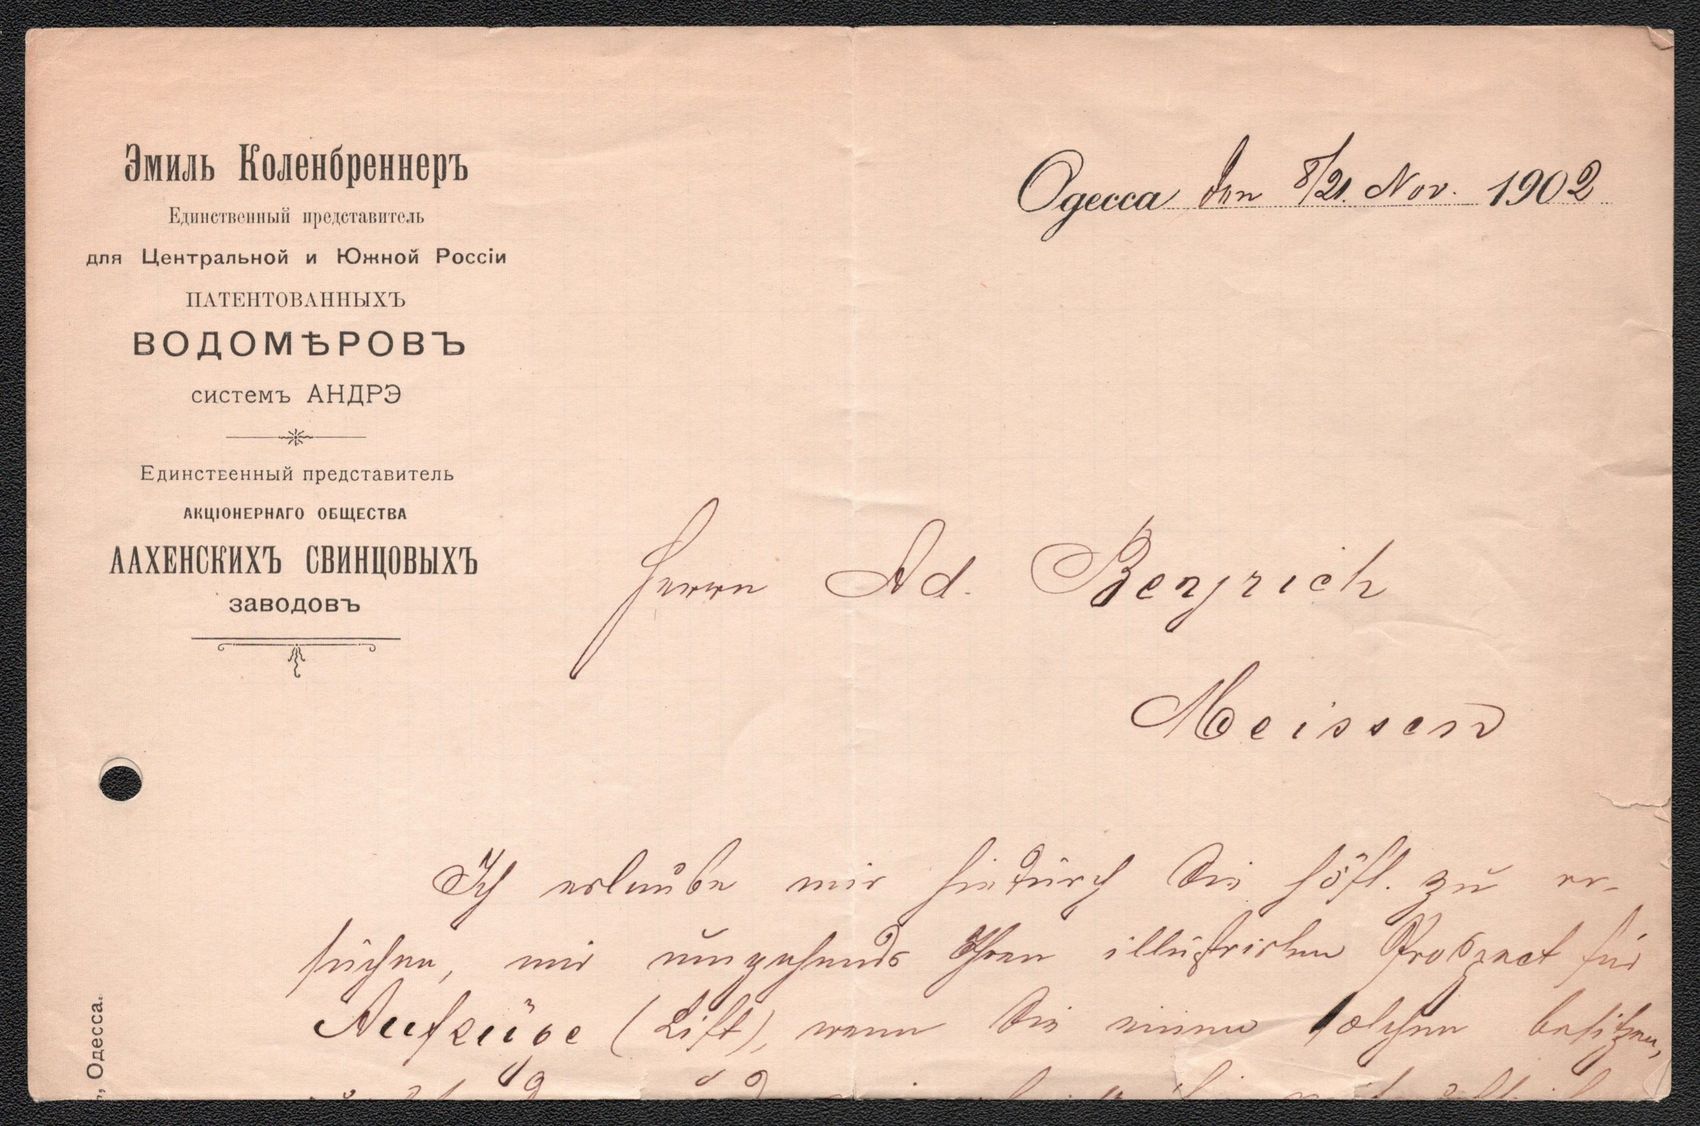 Эмиль Коленбреннеръ
Единственный представитель
для Центральной и Южной Россіи
ПАТЕНТОВАННЫХЪ
ВОДОМѢРОВЪ
системъ АНДРЭ
Единственный представитель
АКЦІОНЕРНАГО ОБЩЕСТВА
ААХЕНСКИХЪ СВИНЦОВЫХЪ
заводовъ
Одесса den 8/21. Nov. 1902
Herrn Ad. Benjrich
Meissen
Ich erlaube mir hiedurch Sie höfl. zu er-
suchen, mir umgehends Ihren illustrirten Prospect für
Aufzüge (Lift), wenn Sie einen solchen besitzen,
, Одесса.